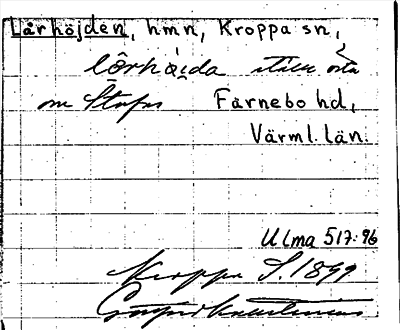 Lårhöjden, hmn, Kroppa sn,
lôrhòi̯da
om Färnebo hd,
Värml. län.
Ulma 517:96
Kroppa S. 1899